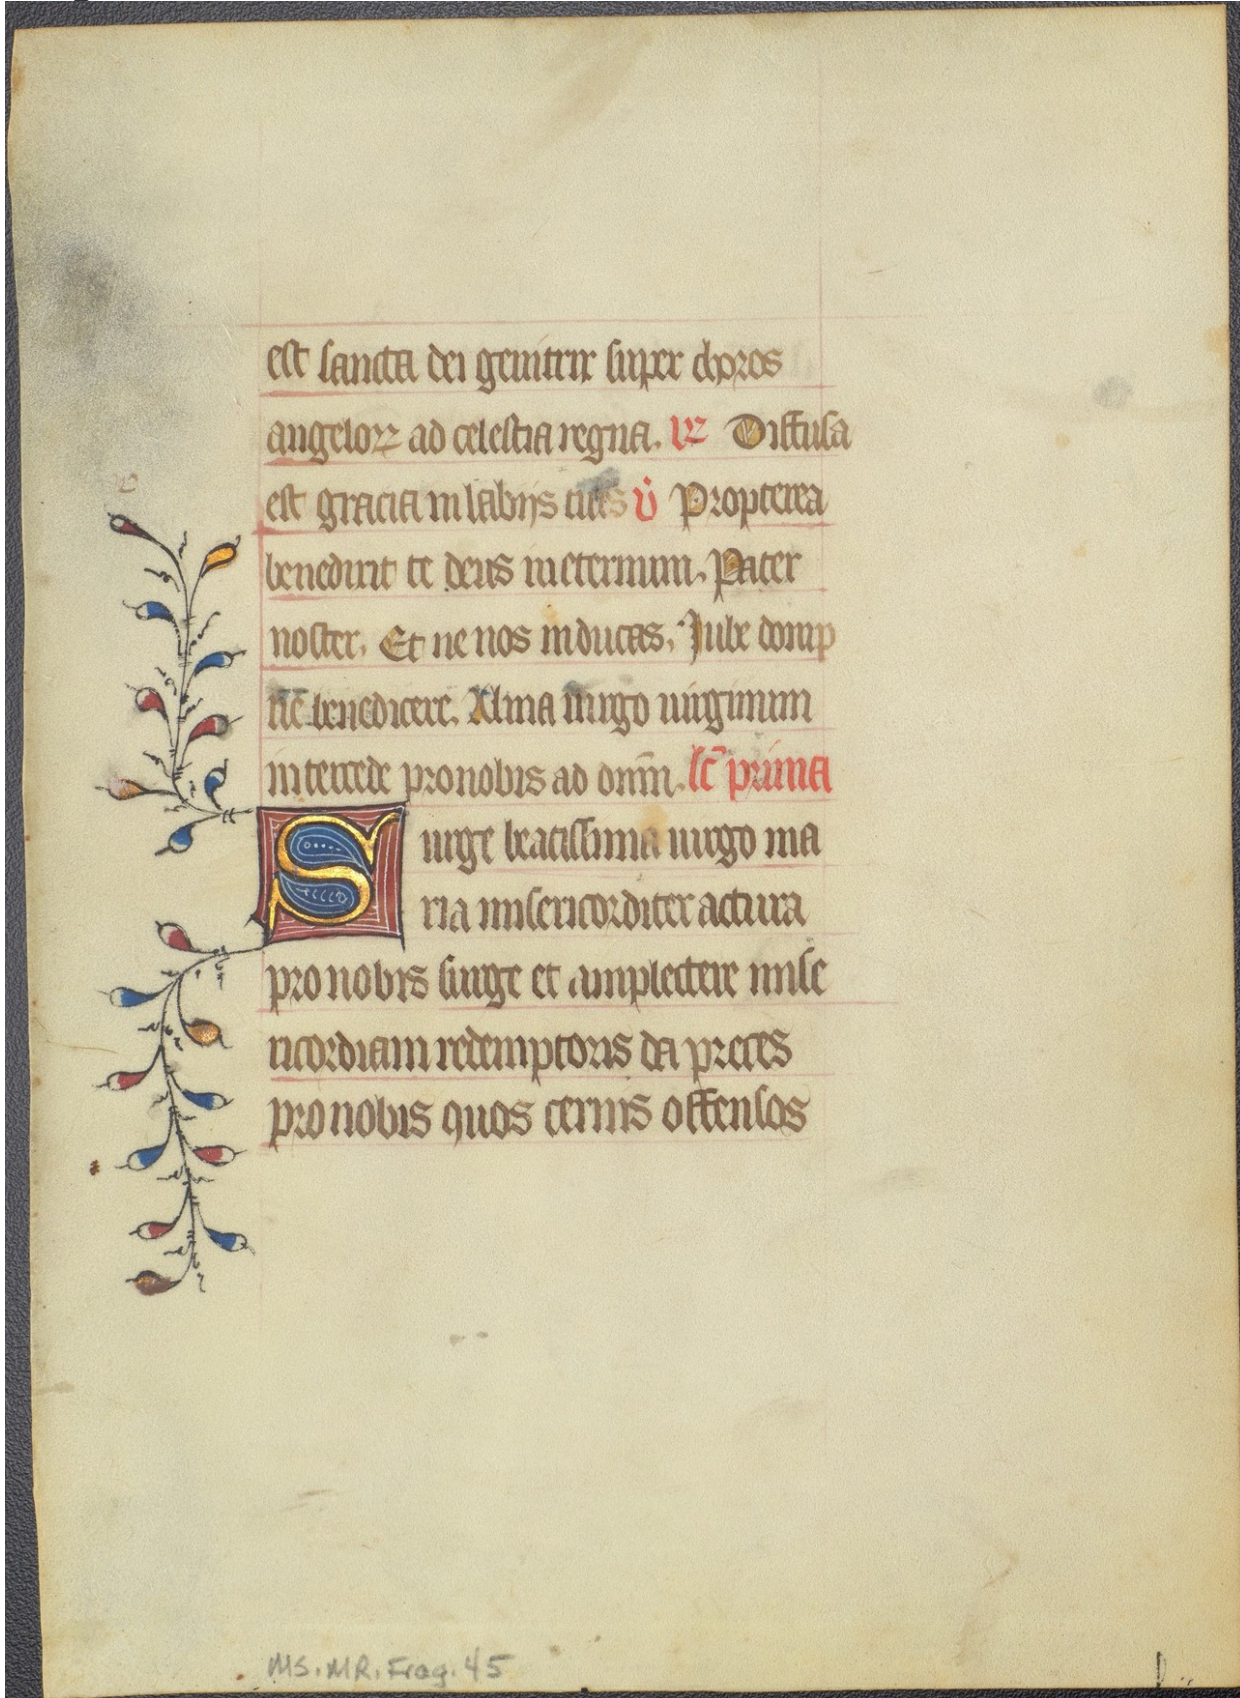 est sancta dei genitrix super choros
angeloꝝ ad celestia regna. ꝶ Diffusa
est gracia in labijs tuis v̇ Propterea
benedixit te deus in eternum. Pater
noster. Et ne nos inducas. Jube domp
ne benedicere. Alma uirgo uirginum
intercede pro nobis ad dnm̄. lc̄ prima
Surge beatissima uirgo ma
ria misericorditer actura
pro nobis surge et amplectere mise
ricordiam redemptoris da preces
pro nobis quos cernis offensos
MS.MR.Frag.45